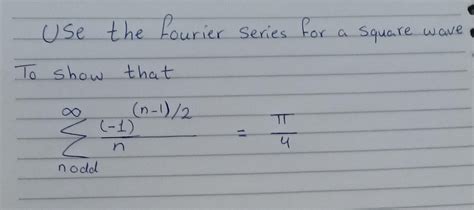 Use the fourier series for a square wave
To show that
∞ (n-1)/2
∑ (-1) / n = π/4
n odd